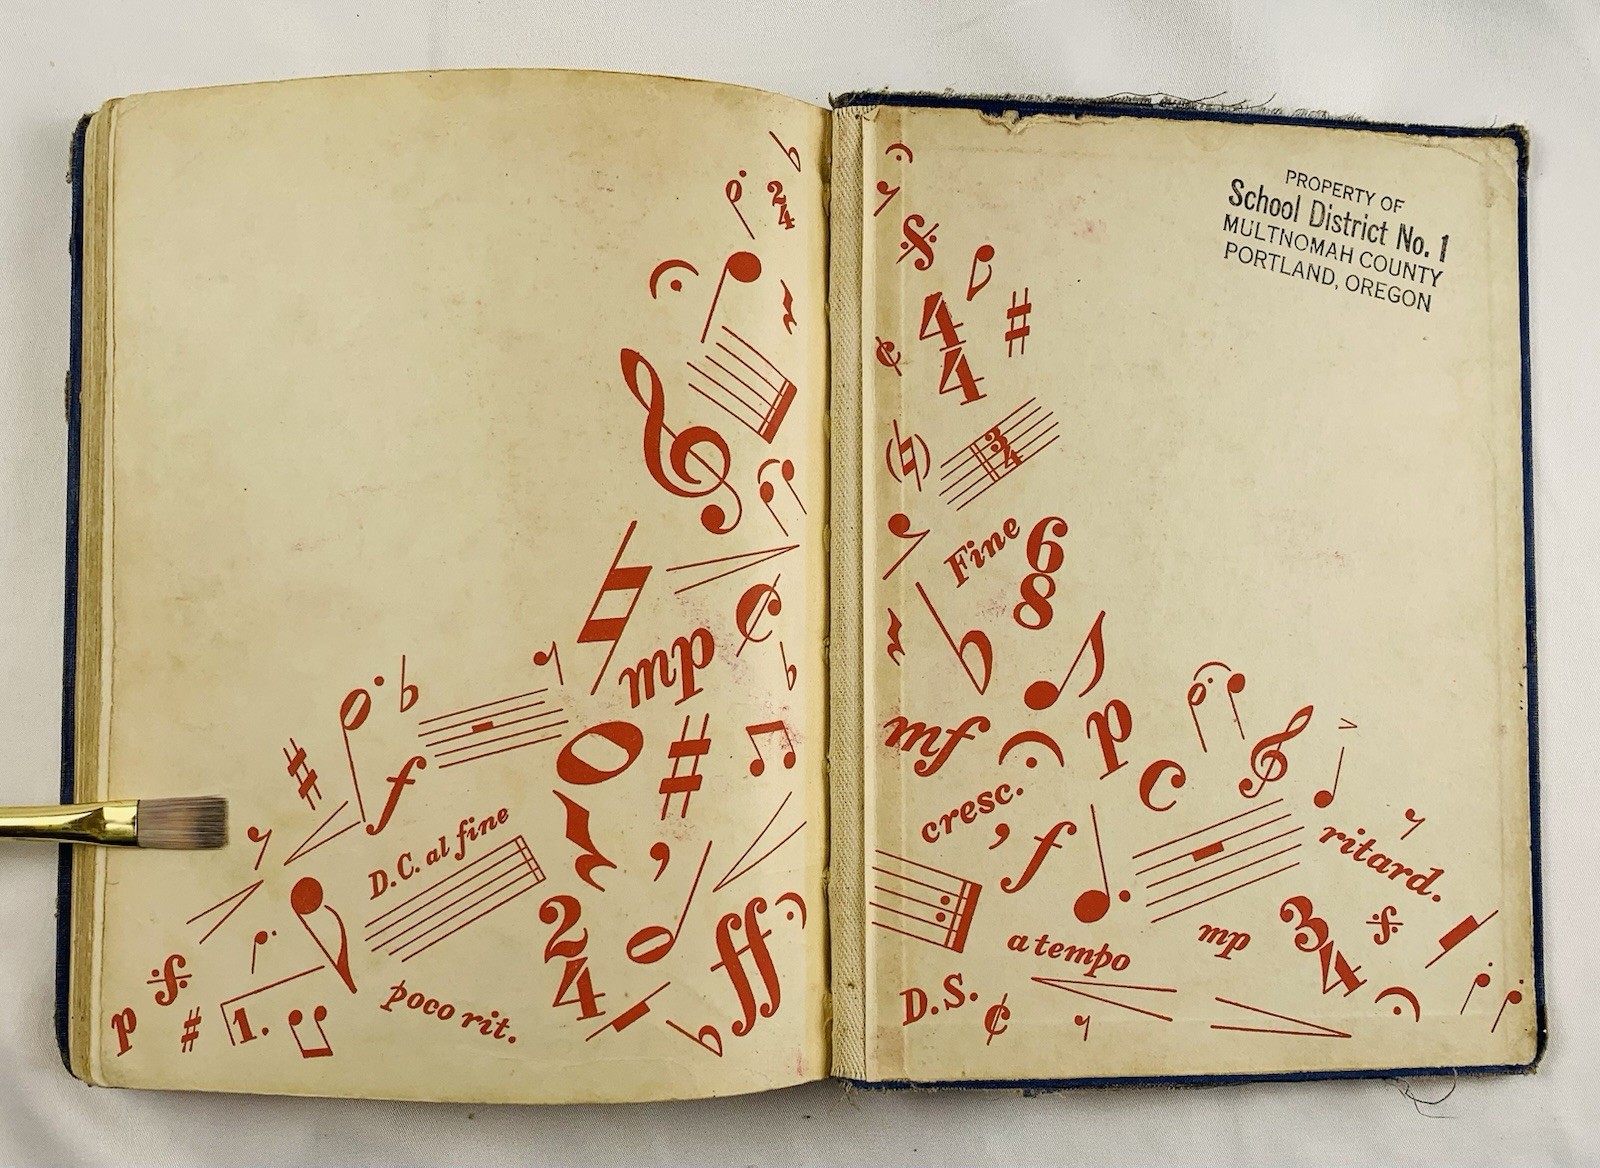 2
4
mp
f
D.C. al fine
2
4
ff
poco rit.
p
1.
PROPERTY OF
School District No. 1
MULTNOMAH COUNTY
PORTLAND, OREGON
4
4
3
4
Fine
6
8
mf
p
cresc.
f
ritard.
mp
3
4
a tempo
D.S.